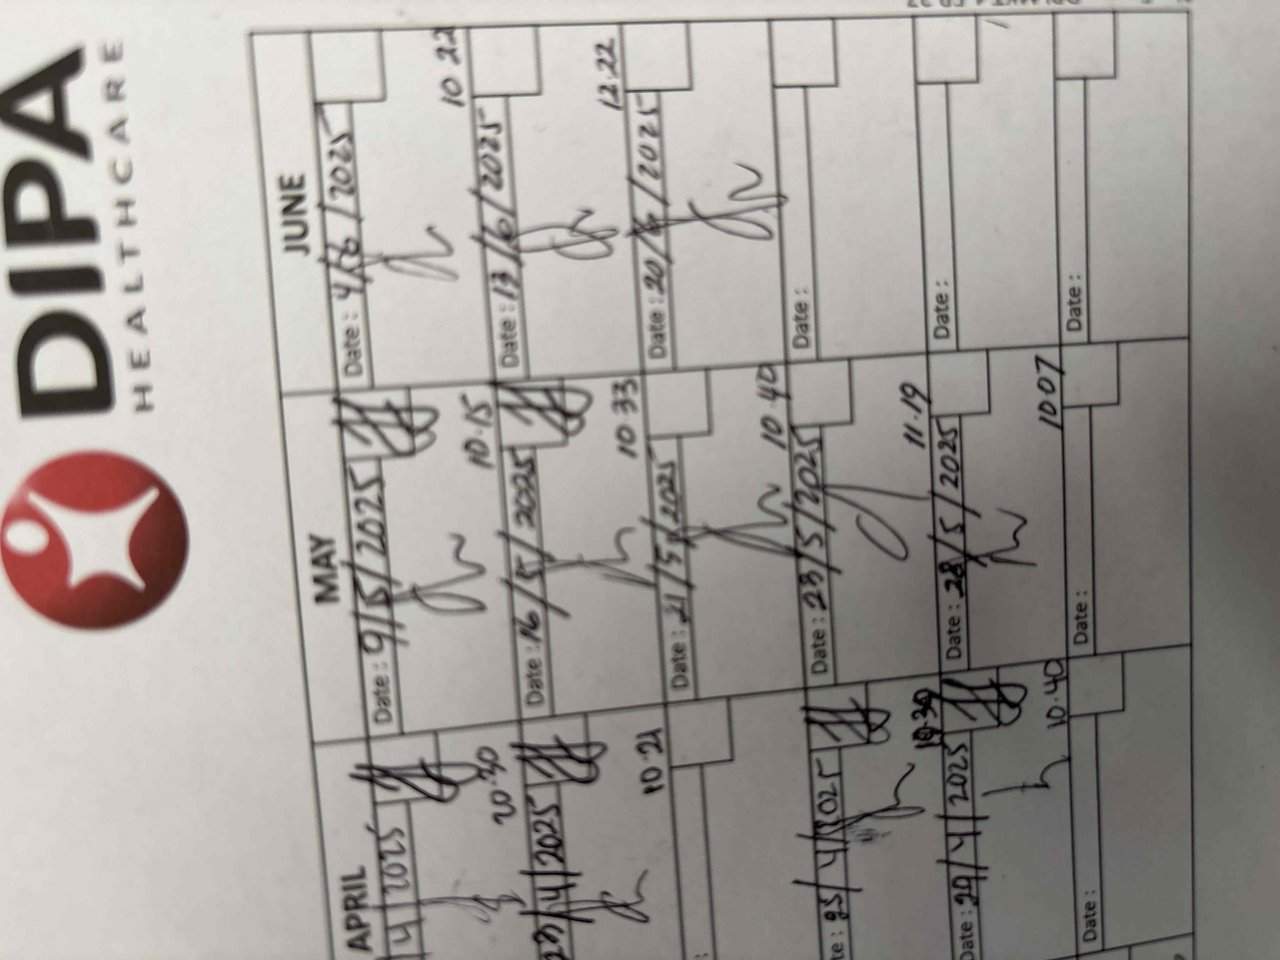 DIPA
HEALTHCARE
APRIL
4/2025
20.30
23/4/2025
10.21
:
te: 25/4/2025
10.30
Date: 29/4/2025
10.40
Date:
MAY
Date: 9/5/2025
10.15
Date: 16/5/2025
10.33
Date: 21/5/2025
10.40
Date: 23/5/2025
11.19
Date: 28/5/2025
10.07
Date:
JUNE
Date: 4/6/2025
10 22
Date: 13/6/2025
12.22
Date: 20/6/2025
Date:
Date:
Date: